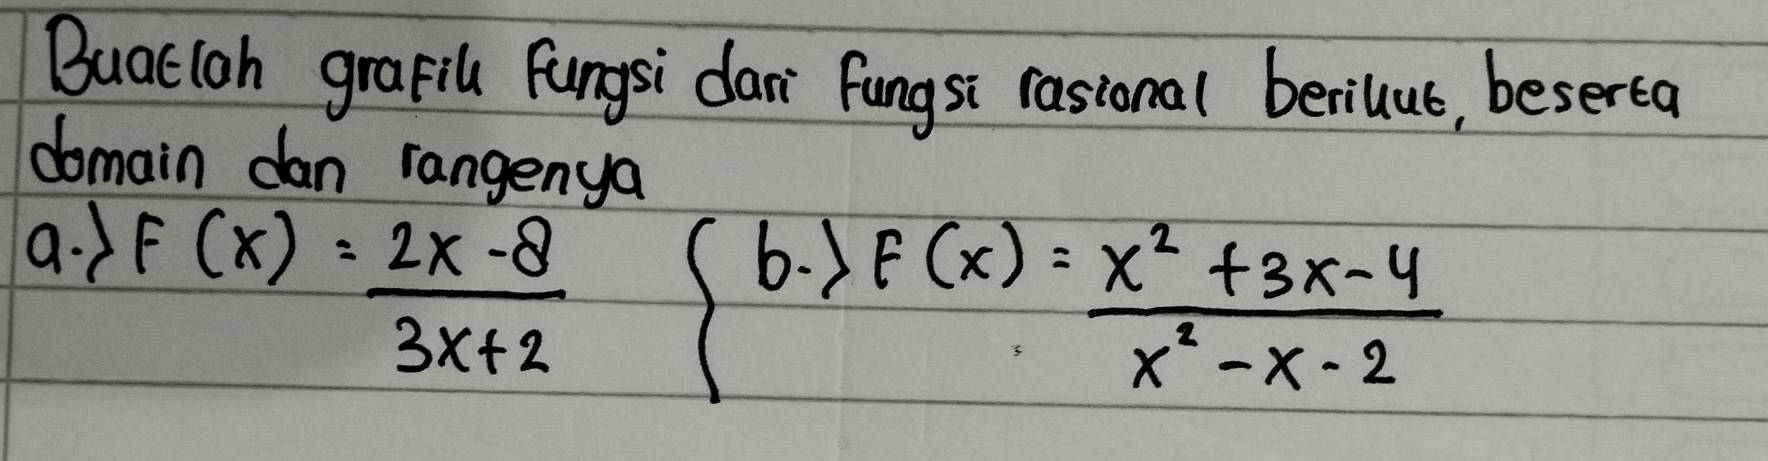 Buatlah grafik fungsi dari fungsi rasional berikut, beserta
domain dan rangenya
a.) F (x) = 2x - 8 / 3x + 2 { b.) F (x) = x² + 3x - 4 / x² - x - 2